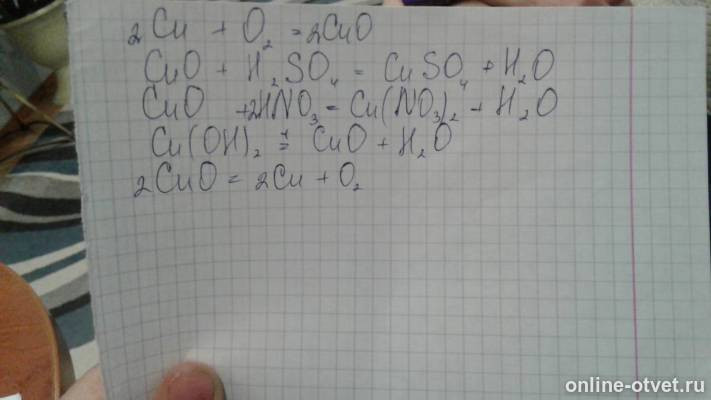 2Cu + O₂ = 2CuO
CuO + H₂SO₄ = CuSO₄ + H₂O
CuO + 2HNO₃ = Cu(NO₃)₂ + H₂O
Cu(OH)₂ = CuO + H₂O
2CuO = 2Cu + O₂
online-otvet.ru